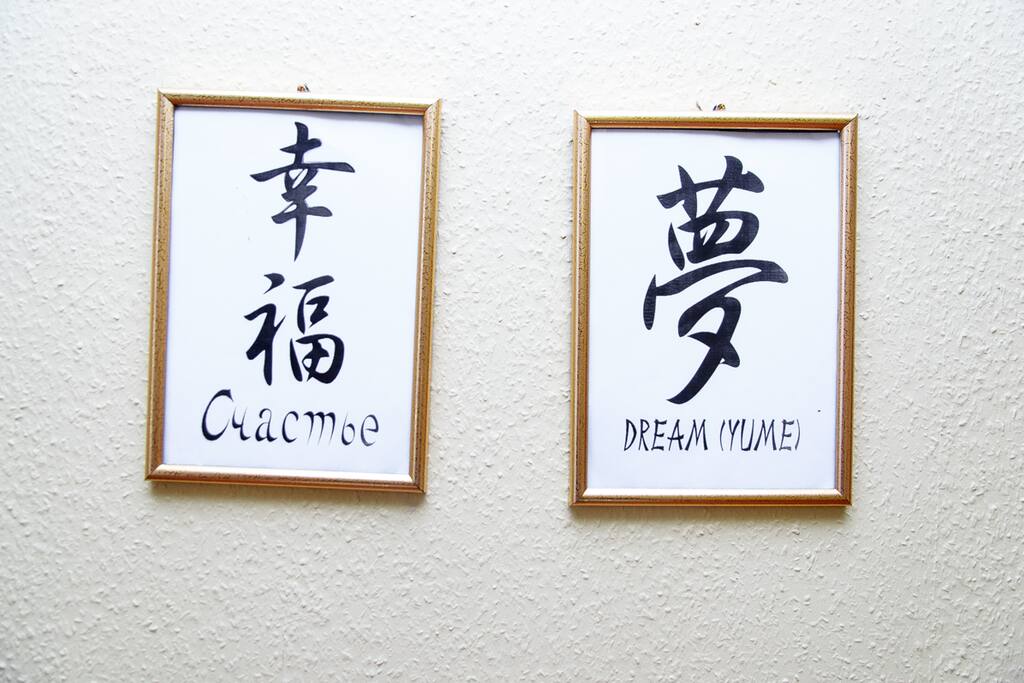 幸福
Счастье
夢
DREAM (YUME)